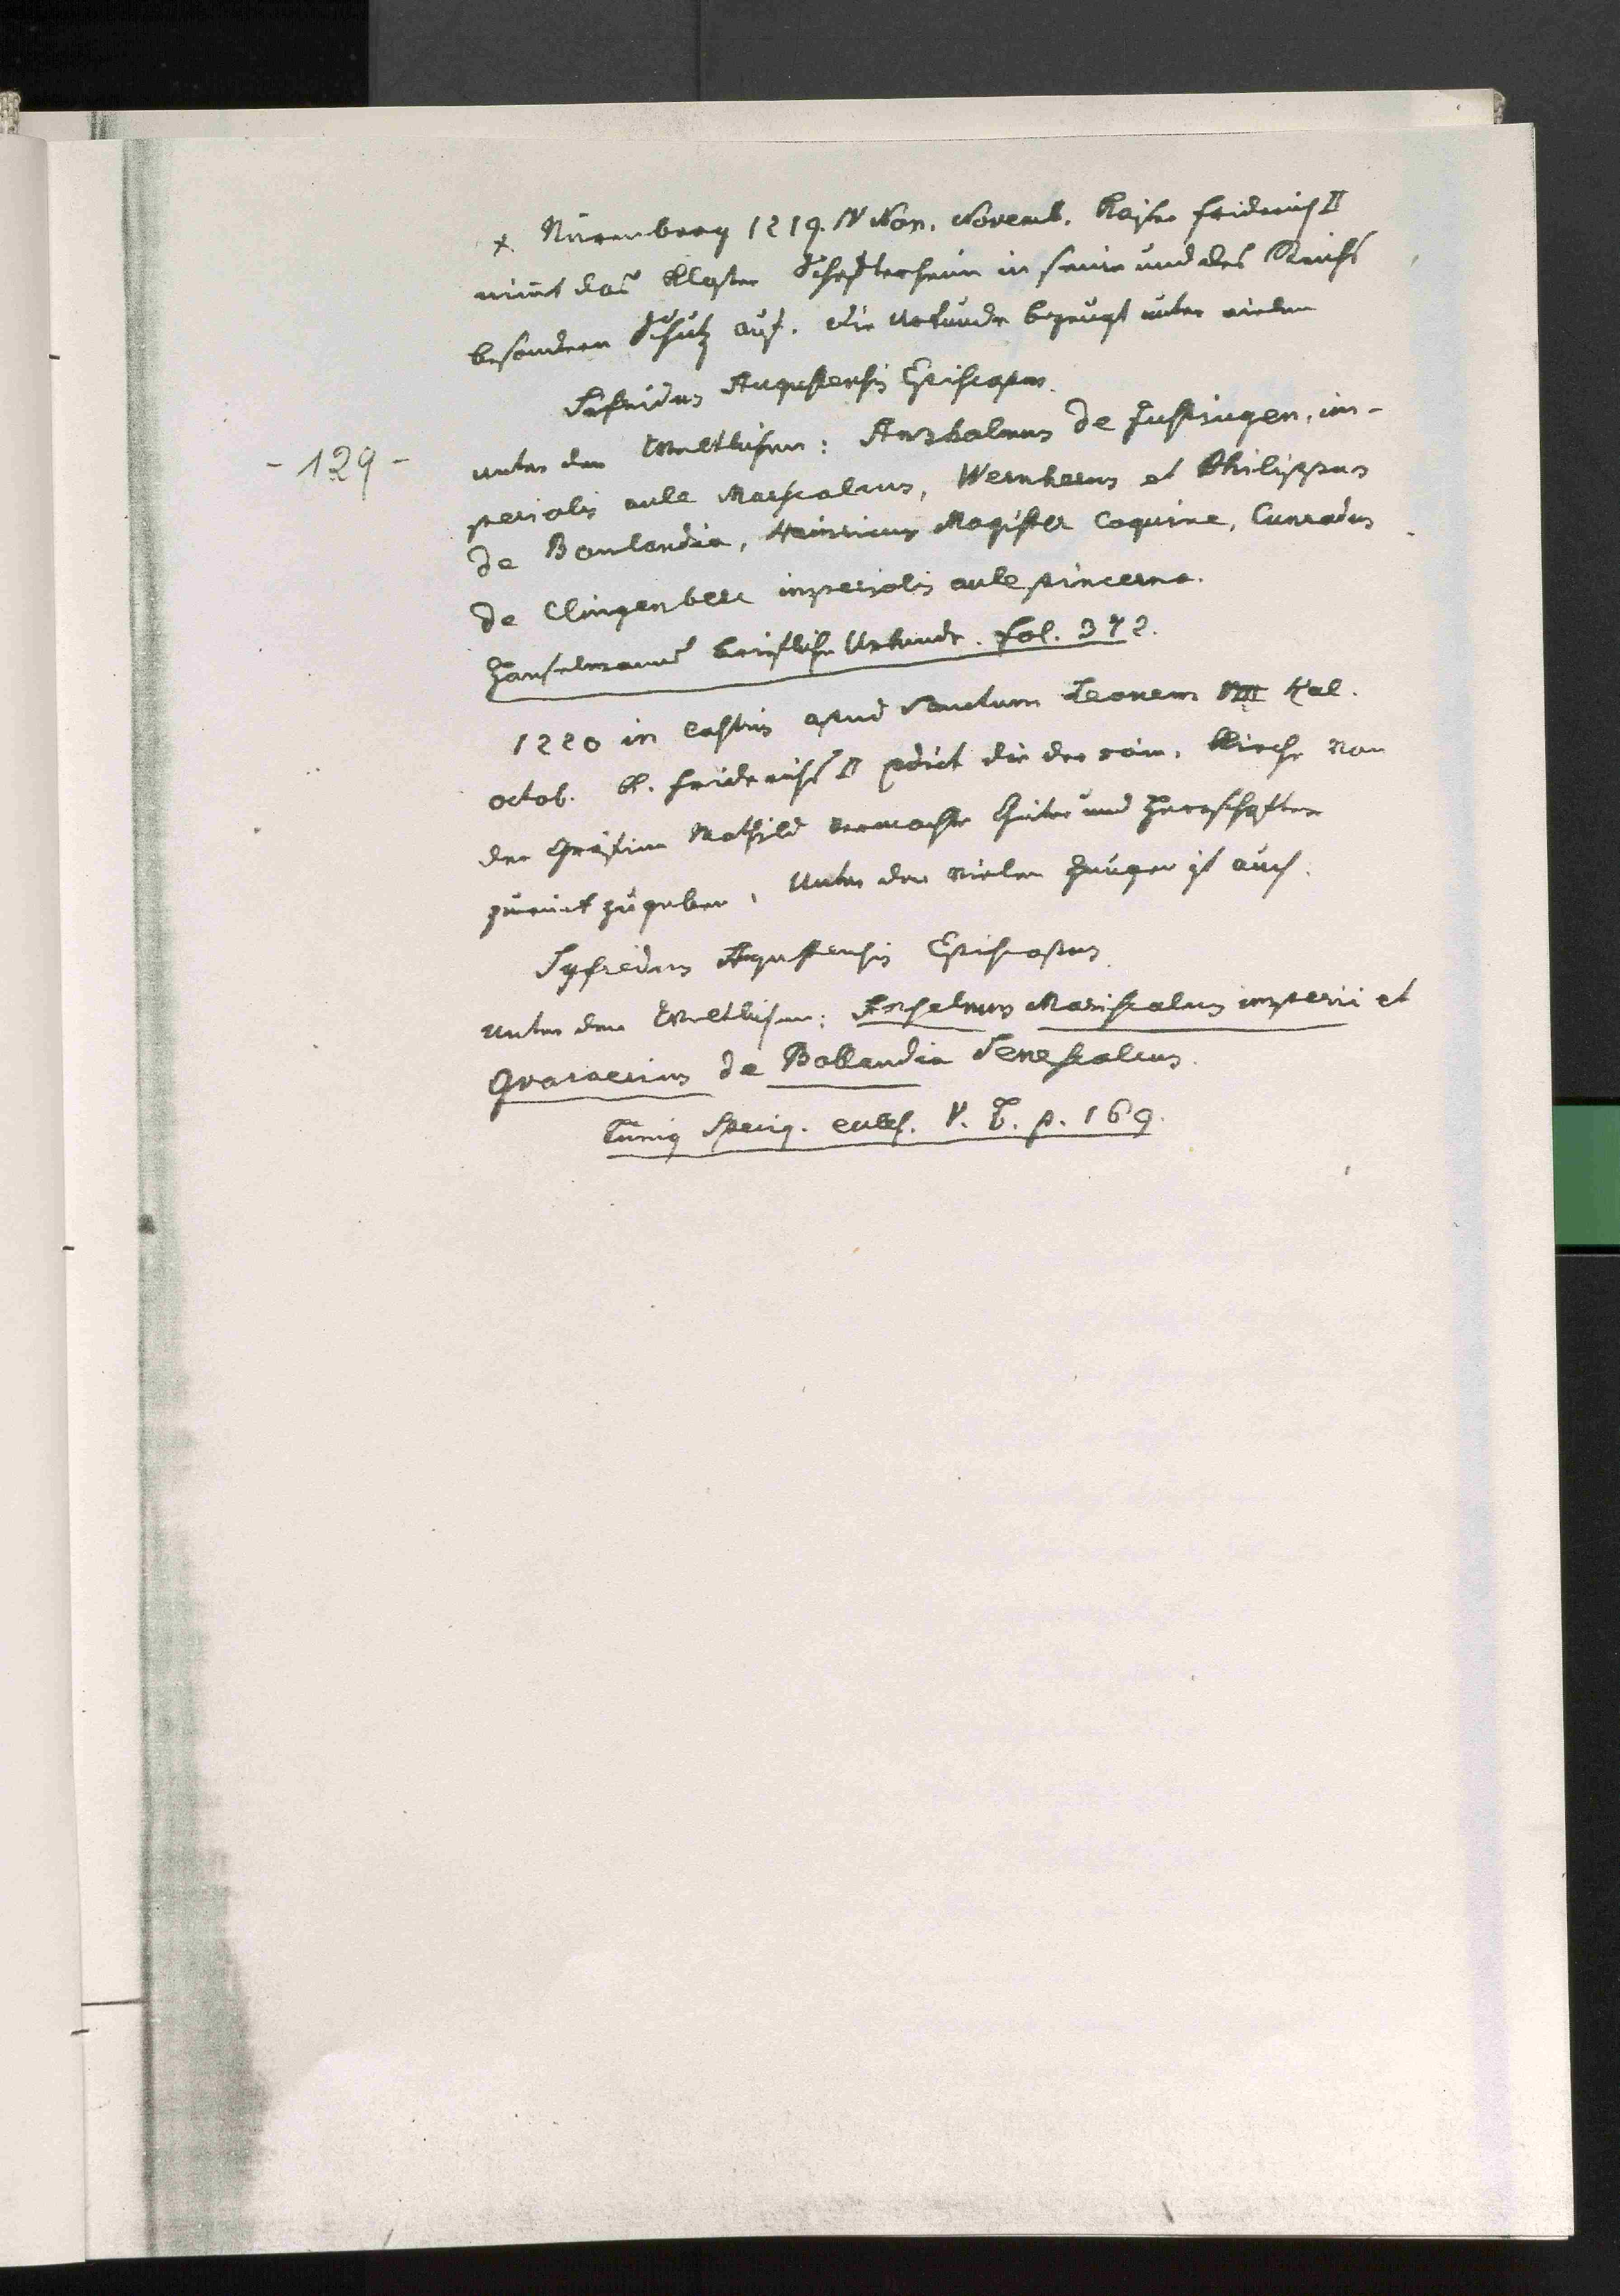 x Nürenberg 1219. IV Non. Novemb. Kaiser Friderich II
nimt das Kloster Scheftersheim in seinen und des Reichs
besondern Schutz auf. die Urkunde bezeugt unter vielen
Sifridus Augustensis Episcopus.
- 129 -
unter den Weltlichen: Anshalmus de Justingen, im-
perialis aule Marscalcus, Wernherus et Philippus
de Bonlandia, Heinricus Magister Coquine, Cunradus
de Clingenberc imperialis aule pincerna.
Hanselmanns Urkunde. fol. 372.
1220 in castris apud Sanctum Leonem VIII Kal.
octob. K. Friderichs II edict die der röm. Kirche von
der Gräfinn Mathild vermachte Güter und Herrschaften
zurück zugeben. Unter den vielen Zeugen ist auch.
Syfredus Agustensis Episcopus.
unter den Weltlichen: Anselmus Mariscalcus imperii et
Gvarnerius de Bollandia Senescalcus.
Lünig Spicig. eccles. V. T. p. 169.